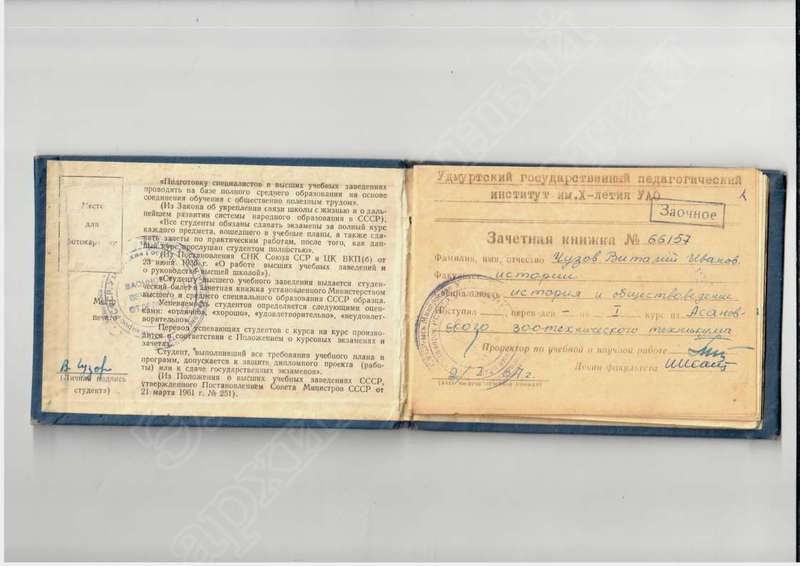 Место
для
фотокарточки
Место
печати
В. Чузов
(Личная подпись
студента)
«Подготовку специалистов в высших учебных заведениях
проводить на базе полного среднего образования на основе
соединения обучения с общественно полезным трудом».
(Из Закона об укреплении связи школы с жизнью и о даль-
нейшем развитии системы народного образования в СССР).
«Все студенты обязаны сдавать экзамены за полный курс
каждого предмета, вошедшего в учебные планы, а также сда-
вать зачеты по практическим работам, после того, как дан-
ный курс прослушан студентом полностью».
(Из Постановления СНК Союза ССР и ЦК ВКП(б) от
23 июня 1936 г. «О работе высших учебных заведений и
о руководстве высшей школой»).
«Студенту высшего учебного заведения выдается студен-
ческий билет и зачетная книжка установленного Министерством
высшего и среднего специального образования СССР образца.
Успеваемость студентов определяется следующими оцен-
ками: «отлично», «хорошо», «удовлетворительно», «неудовлет-
ворительно».
Перевод успевающих студентов с курса на курс произво-
дится в соответствии с Положением о курсовых экзаменах и
зачетах.
Студент, выполнивший все требования учебного плана и
программ, допускается к защите дипломного проекта (рабо-
ты) или к сдаче государственных экзаменов».
(Из Положения о высших учебных заведениях СССР,
утвержденного Постановлением Совета Министров СССР от
21 марта 1961 г. № 251).
Удмуртский государственный педагогический
институт им.X-летия УАО
Заочное
Зачетная книжка № 66157
Фамилия, имя, отчество Чузов Виталий Иванов.
Факультет истории
Специальность история и обществоведение
Поступил переведен - на I курс из Асанов-
ского зоотехнического техникума
Проректор по учебной и научной работе
Декан факультета